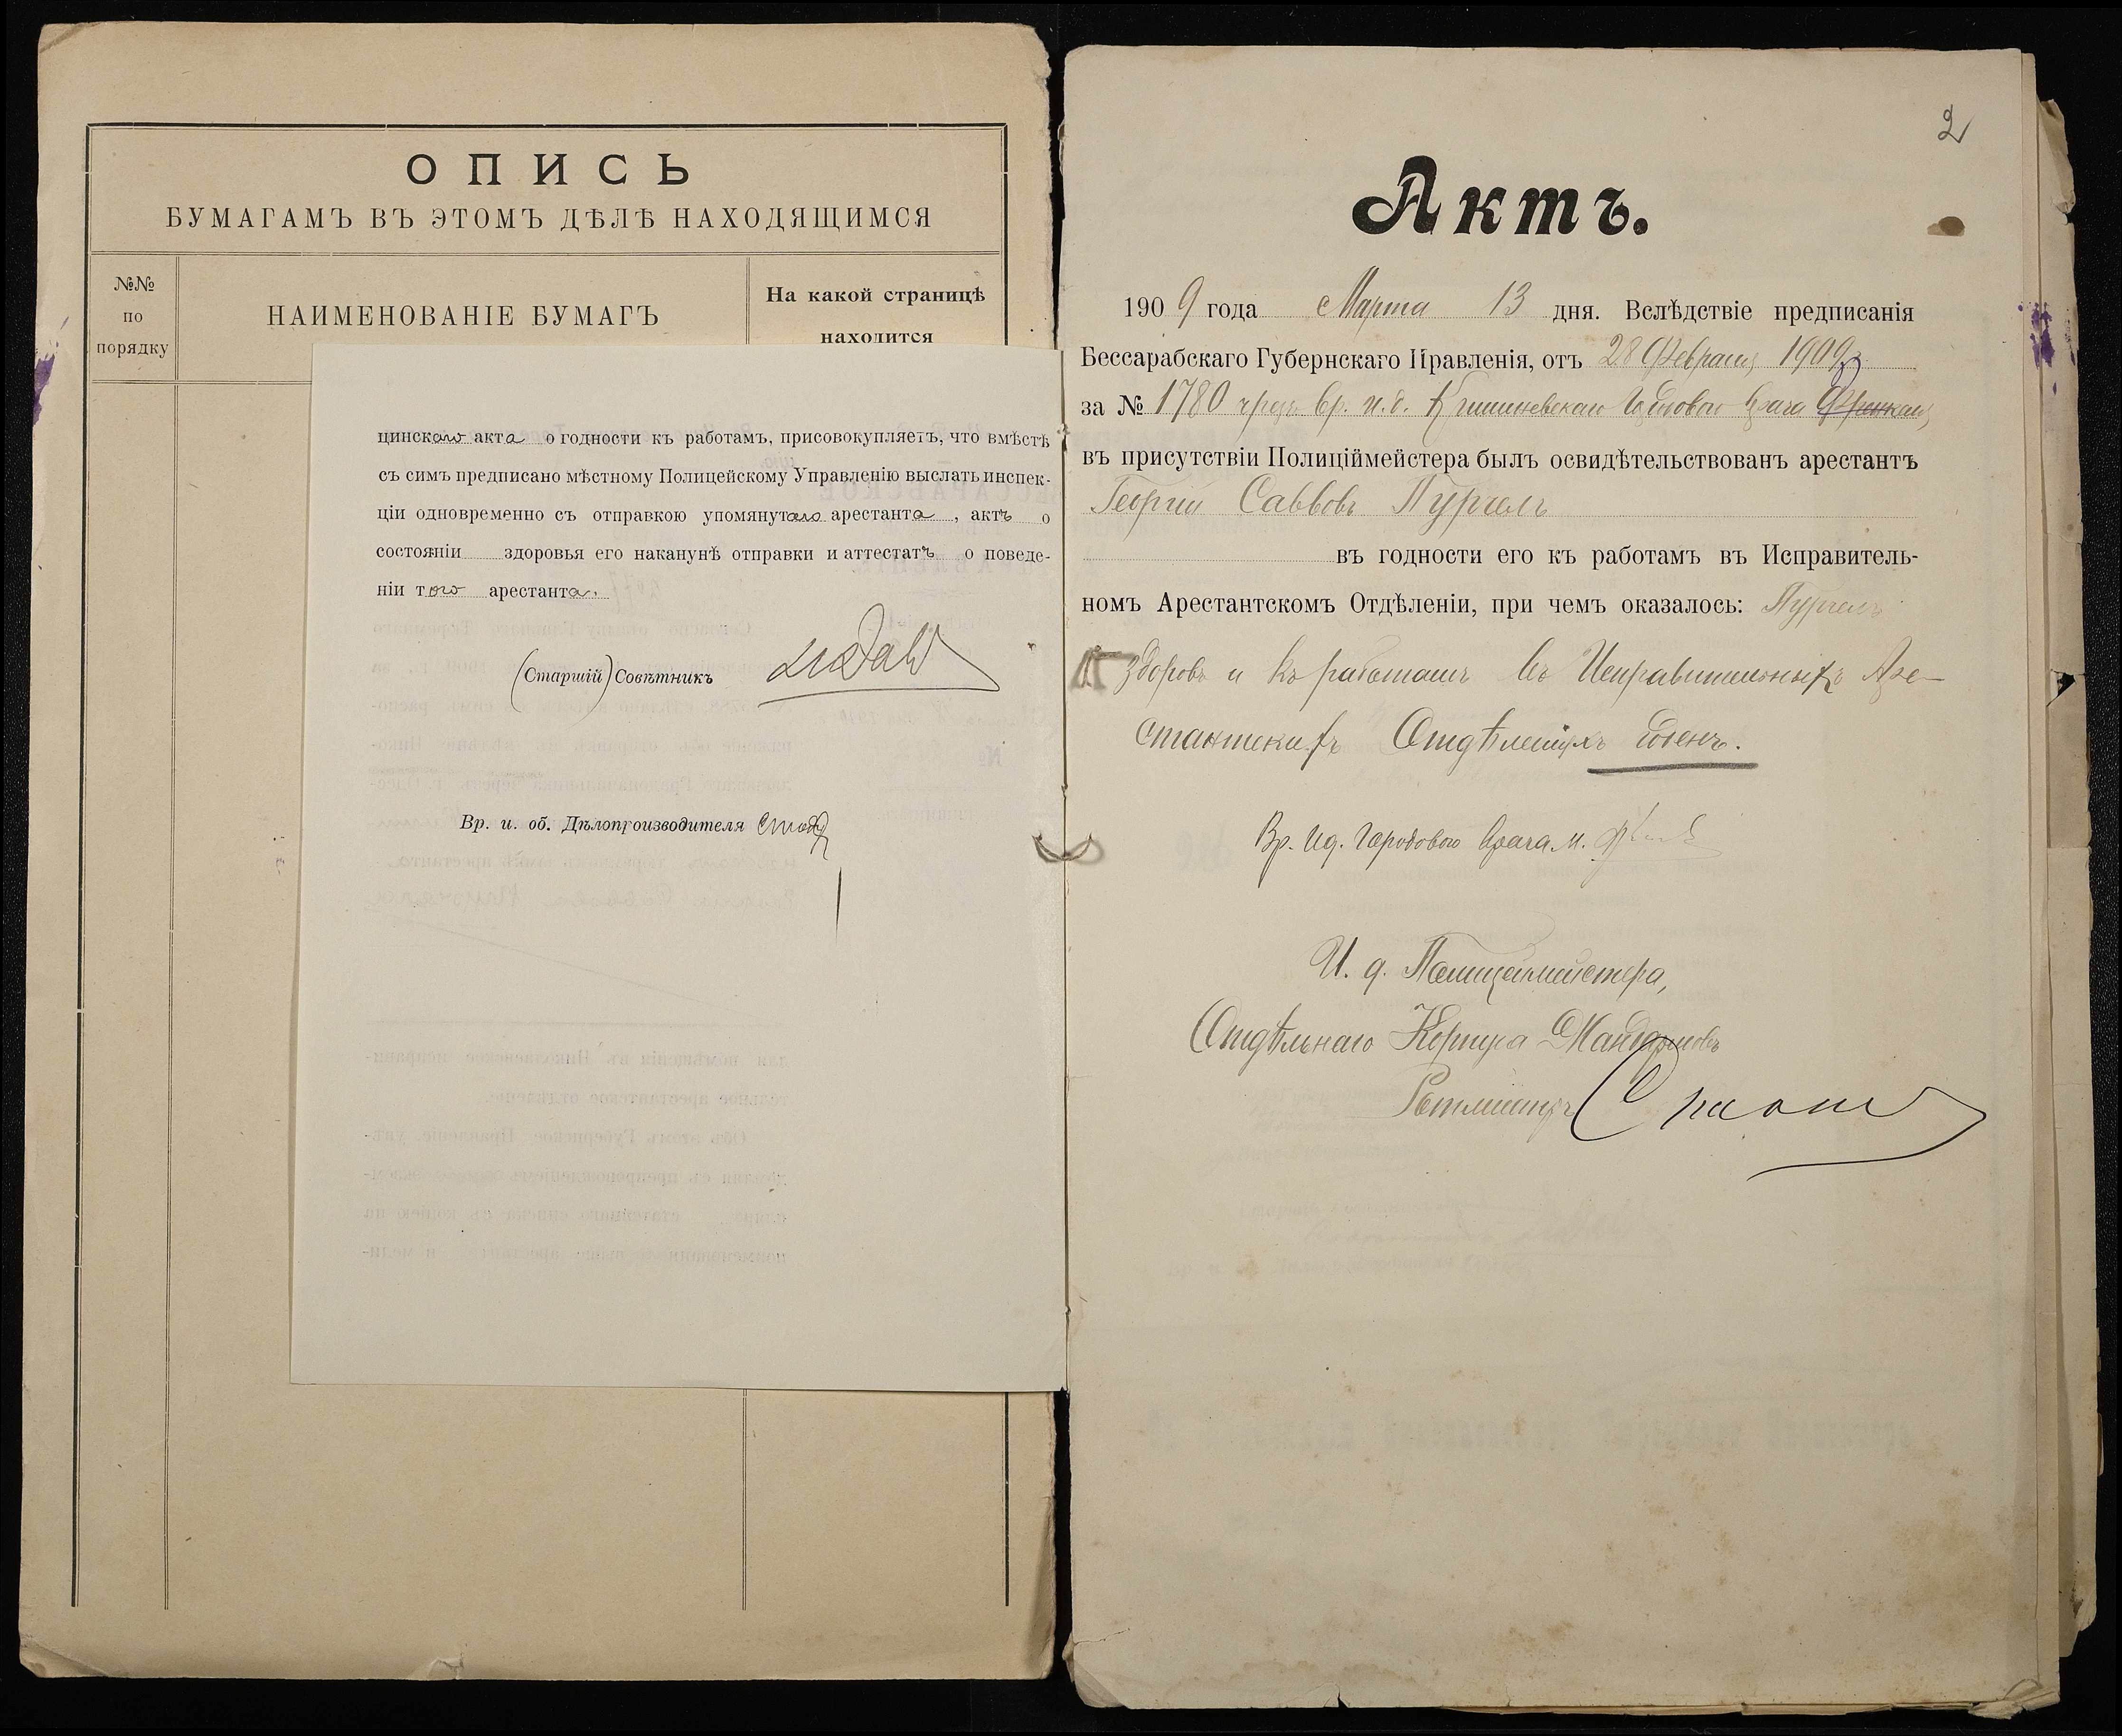 ОПИСЬ
БУМАГАМЪ ВЪ ЭТОМЪ ДѢЛѢ НАХОДЯЩИМСЯ
№№
по
порядку
НАИМЕНОВАНІЕ БУМАГЪ
На какой страницѣ
находится
цинскаго акта о годности къ работамъ, присовокупляетъ, что вмѣстѣ
съ симъ предписано мѣстному Полицейскому Управленію выслать инспек-
ціи одновременно съ отправкою упомянутаго арестанта, актъ о
состояніи здоровья его наканунѣ отправки и аттестатъ о поведе-
ніи того арестанта.
(Старшій) Совѣтникъ
Вр. и. об. Дѣлопроизводителя
2
Актъ.
1909 года Марта 13 дня. Вслѣдствіе предписанія
Бессарабскаго Губернскаго Правленія, отъ 28 Февраля 1909 г.
за № 1780 чрезъ Вр. и. д. Кишиневскаго Городового Врача
въ присутствіи Полиціймейстера былъ освидѣтельствованъ арестантъ
Георгій Саввовъ Пургелъ
въ годности его къ работамъ въ Исправитель-
номъ Арестантскомъ Отдѣленіи, при чемъ оказалось: Пургелъ
здоровъ и къ работамъ въ Исправительныхъ Аре-
стантскихъ Отдѣленіяхъ годенъ.
Вр. Ид. Городового Врача М.
И. д. Полицеймейстера,
Отдѣльнаго Корпуса Жандармовъ
Ротмистръ